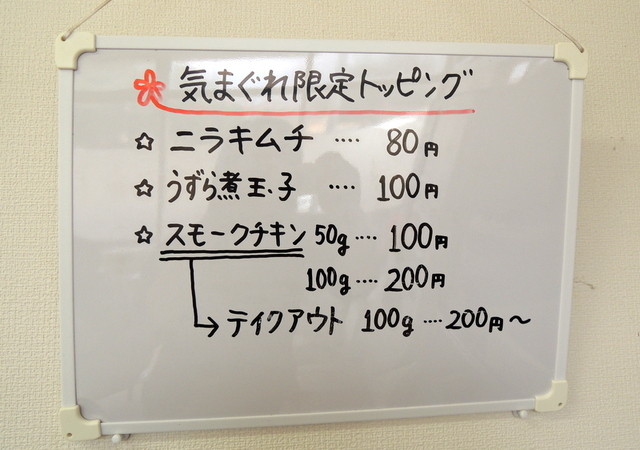 気まぐれ限定トッピング
☆ ニラキムチ ‥‥ 80円
☆ うずら煮玉子 ‥‥ 100円
☆ スモークチキン 50g ‥‥ 100円
100g ‥‥ 200円
→ テイクアウト 100g ‥‥ 200円〜